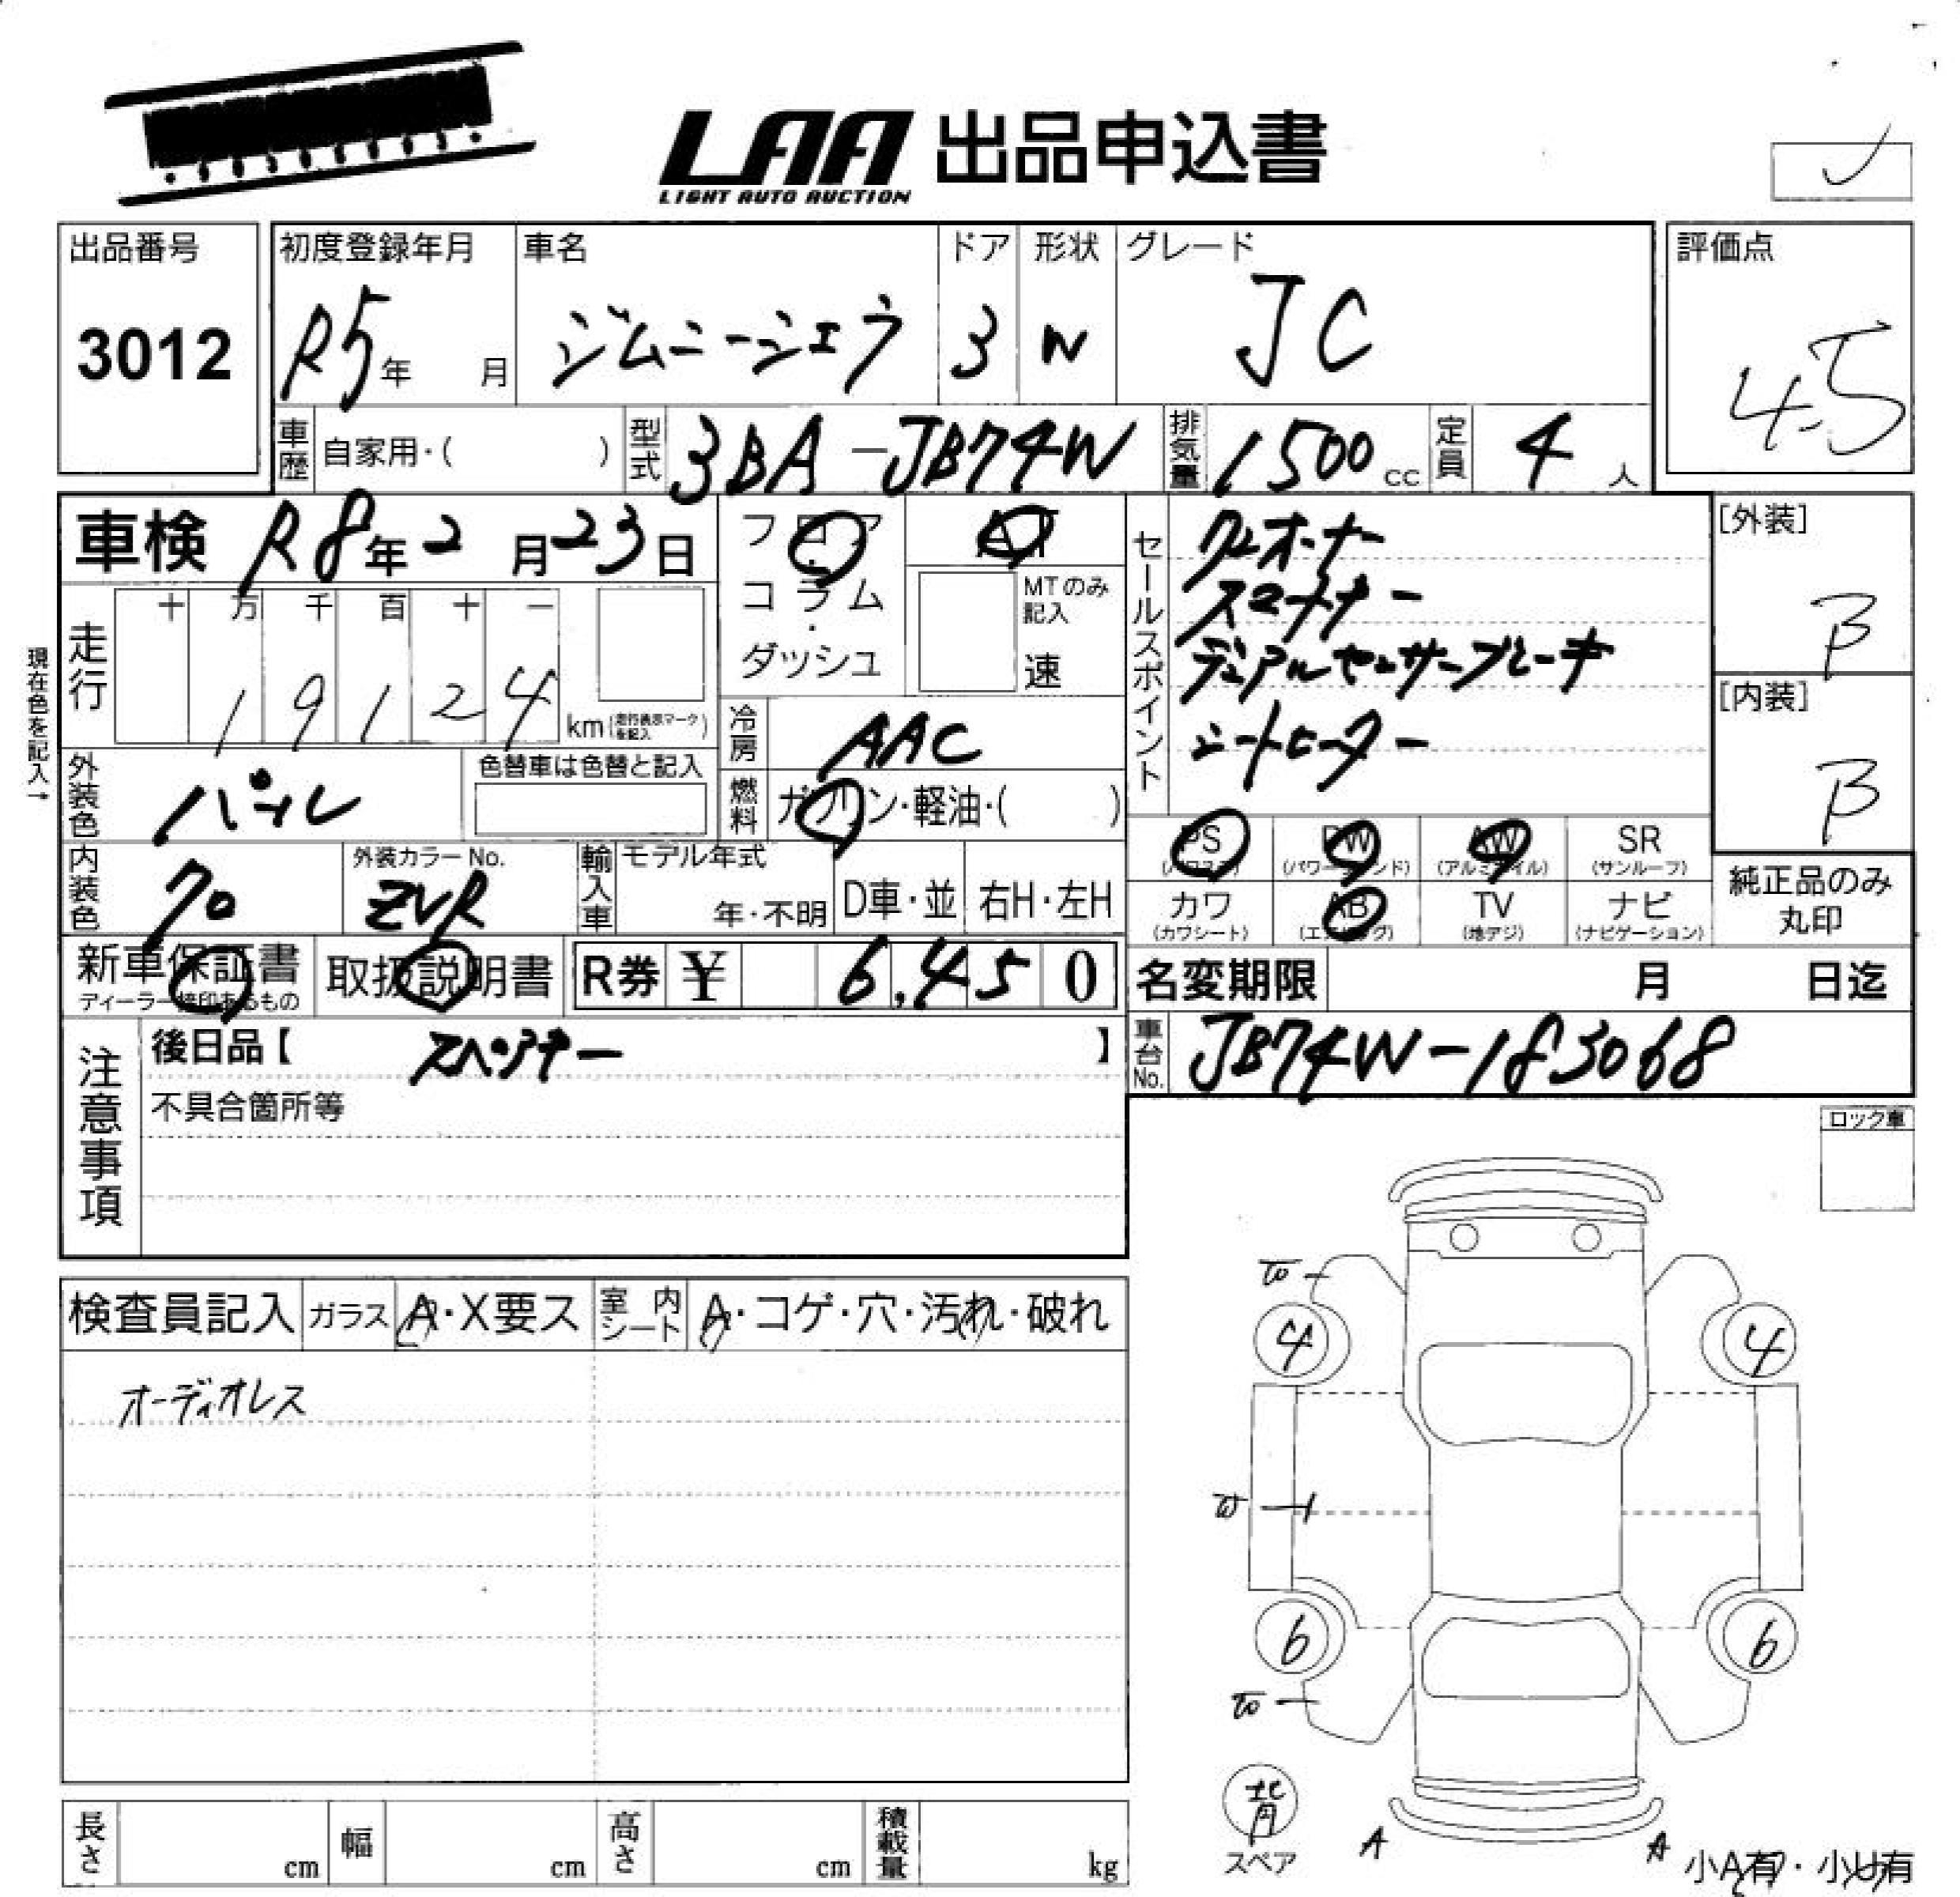 LAA 出品申込書
LIGHT AUTO AUCTION
出品番号
3012
初度登録年月
R5年 月
車名
ジムニーシエラ
ドア
3
形状
W
グレード
JC
評価点
4.5
車歴
自家用・( )
型式
3BA-JB74W
排気量
1500cc
定員
4人
車検 R8年2月23日
フロア
・
コラム
・
ダッシュ
AT
MTのみ
記入
速
走行
十 万 千 百 十 一
1 9 1 2 4
km(走行表示マークを記入)
現在色を記入→
外装色
パール
色替車は色替と記入
冷房
AAC
燃料
ガソリン・軽油・( )
内装色
クロ
外装カラーNo.
ZVR
輸入車
モデル年式
年・不明
D車・並
右H・左H
新車保証書
ディーラー捺印あるもの
取扱説明書
R券 ¥ 6,450
セールスポイント
ワンオーナー
スマートキー
デュアルセンサーブレーキ
シートヒーター
[外装]
B
[内装]
B
PS
(パワステ)
PW
(パワーウィンド)
AW
(アルミホイル)
SR
(サンルーフ)
カワ
(カワシート)
AB
(エアバッグ)
TV
(地デジ)
ナビ
(ナビゲーション)
純正品のみ
丸印
名変期限 月 日迄
車台No.
JB74W-183068
注意事項
後日品【 スペアキー 】
不具合箇所等
ロック車
検査員記入
ガラス
A・X要ス
室内シート
A・コゲ・穴・汚れ・破れ
オーディオレス
4 4
6 6
背
スペア
A A
小A有・小U有
長さ cm
幅 cm
高さ cm
積載量 kg